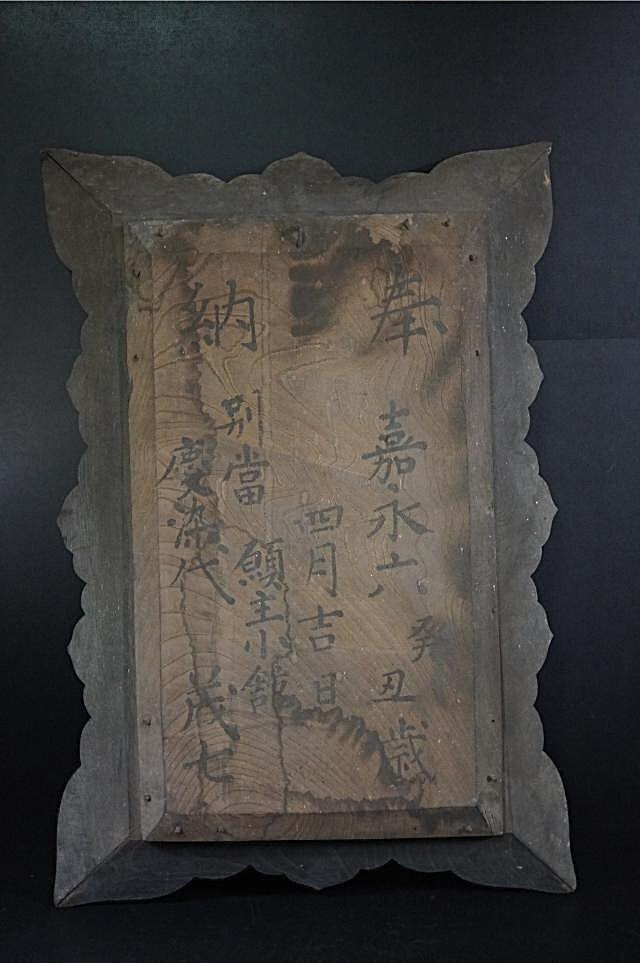 奉
嘉永六癸丑歳
四月吉日
納
別當
願主小舘
慶染代
茂七